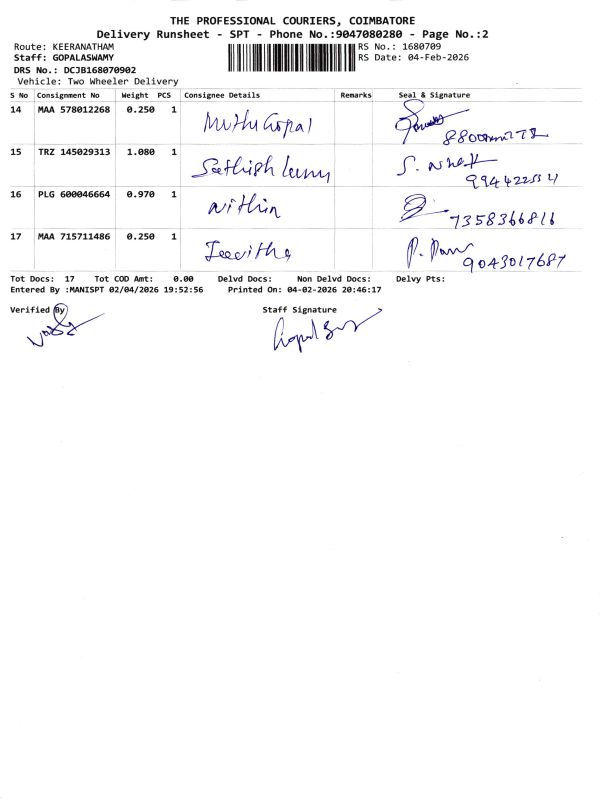 THE PROFESSIONAL COURIERS, COIMBATORE
Delivery Runsheet - SPT - Phone No.:9047080280 - Page No.:2
Route: KEERANATHAM RS No.: 1680709
Staff: GOPALASWAMY RS Date: 04-Feb-2026
DRS No.: DCJB168070902
Vehicle: Two Wheeler Delivery
S No Consignment No Weight PCS Consignee Details Remarks Seal & Signature
14 MAA 578012268 0.250 1 Muthu Gopal
15 TRZ 145029313 1.080 1 Sathish
16 PLG 600046664 0.970 1 Nithin 7358366816
17 MAA 715711486 0.250 1 Jeevitha 9043017687
Tot Docs: 17 Tot COD Amt: 0.00 Delvd Docs: Non Delvd Docs: Delvy Pts:
Entered By :MANISPT 02/04/2026 19:52:56 Printed On: 04-02-2026 20:46:17
Verified By Staff Signature